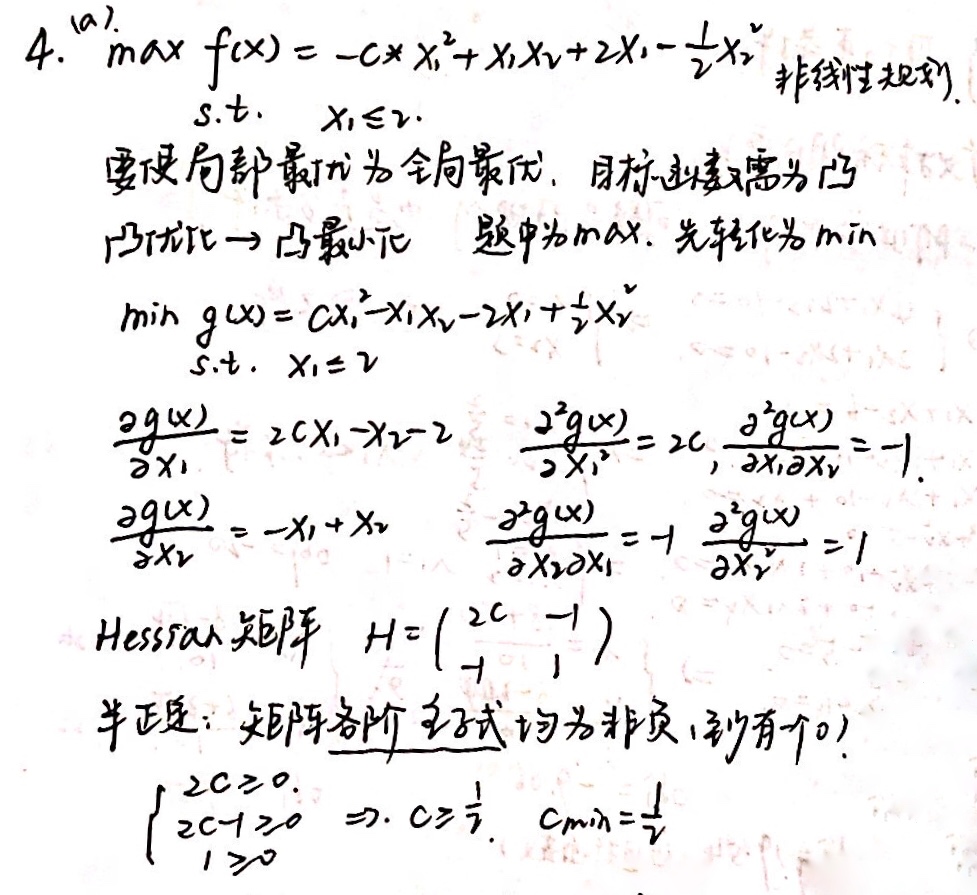 4. (a). max f(x) = -C* x₁² + x₁x₂ + 2x₁ - 1/2 x₂² 非线性规划.
s.t. x₁ ≤ 2.
要使局部最优为全局最优. 目标函数需为凸
凸优化 → 凸最小化 题中为max. 先转化为min
min g(x) = Cx₁² - x₁x₂ - 2x₁ + 1/2 x₂²
s.t. x₁ ≤ 2
∂g(x)/∂x₁ = 2Cx₁ - x₂ - 2 ∂²g(x)/∂x₁² = 2C, ∂²g(x)/∂x₁∂x₂ = -1.
∂g(x)/∂x₂ = -x₁ + x₂ ∂²g(x)/∂x₂∂x₁ = -1 ∂²g(x)/∂x₂² = 1
Hessian 矩阵 H = ( 2C -1
-1 1 )
半正定: 矩阵各阶主子式均为非负, (至少有一个0)
{ 2C ≥ 0.
2C-1 ≥ 0 ⇒. C ≥ 1/2. Cmin = 1/2
1 ≥ 0